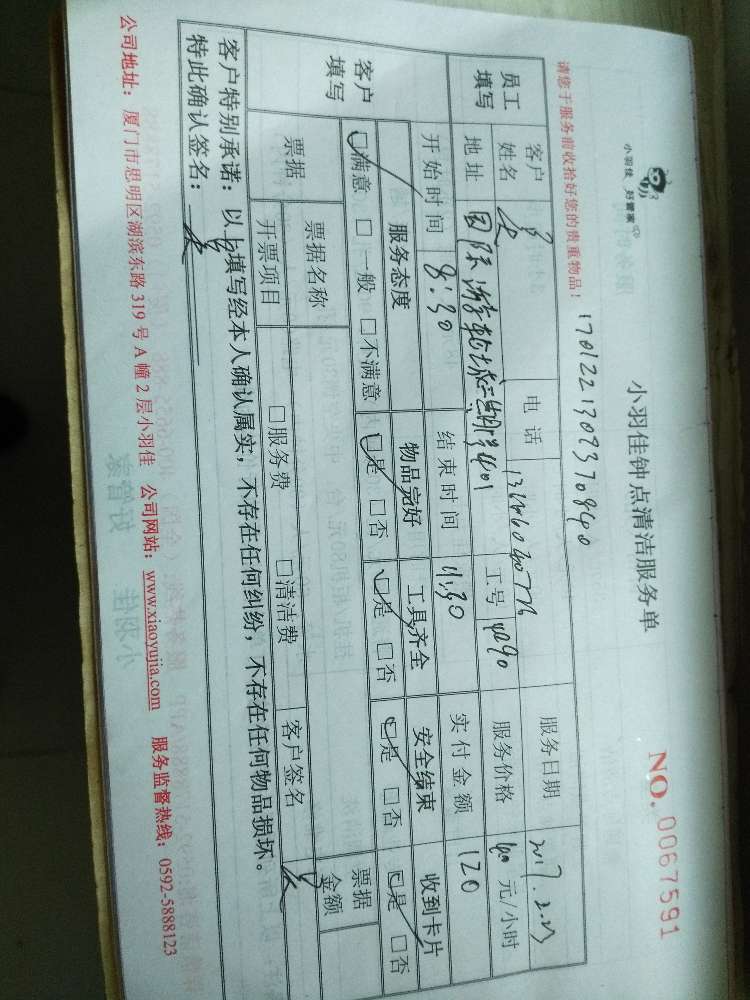 小羽佳 好管家
小羽佳钟点清洁服务单
NO. 0067591
请您于服务前收拾好您的贵重物品！
员工填写 客户姓名 电话 工号 4290 服务日期
地址 服务价格 40 元/小时
开始时间 8:30 结束时间 11:30 实付金额 120
客户填写 服务态度 物品完好 工具齐全 安全结束 收到卡片
☑满意 □一般 □不满意 ☑是 □否 ☑是 □否 ☑是 □否 ☑是 □否
票据 票据名称 客户签名 票据金额
开票项目 □服务费 □清洁费
客户特别承诺：以上填写经本人确认属实，不存在任何纠纷，不存在任何物品损坏。
特此确认签名：
公司地址：厦门市思明区湖滨东路 319 号 A 幢 2 层小羽佳 公司网站：www.xiaoyujia.com 服务监督热线：0592-5888123